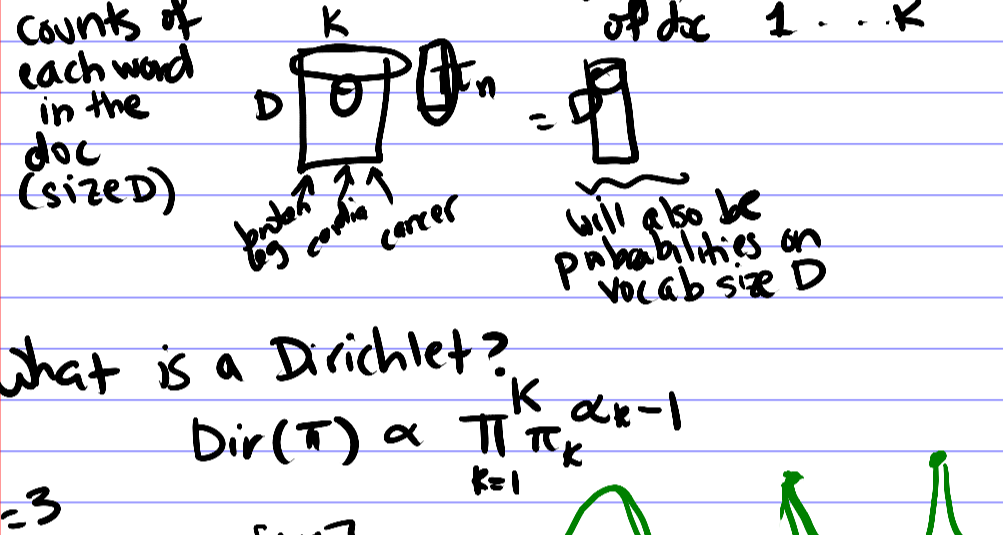 counts of
each word
in the
doc
(size D)
K
D
θ
π_n
broken
leg
cardio
cancer
of doc 1 . . . K
=
D
will also be
probabilities on
vocab size D
What is a Dirichlet?
Dir(π) ∝ ∏_{k=1}^{K} π_k^{α_k-1}
=3